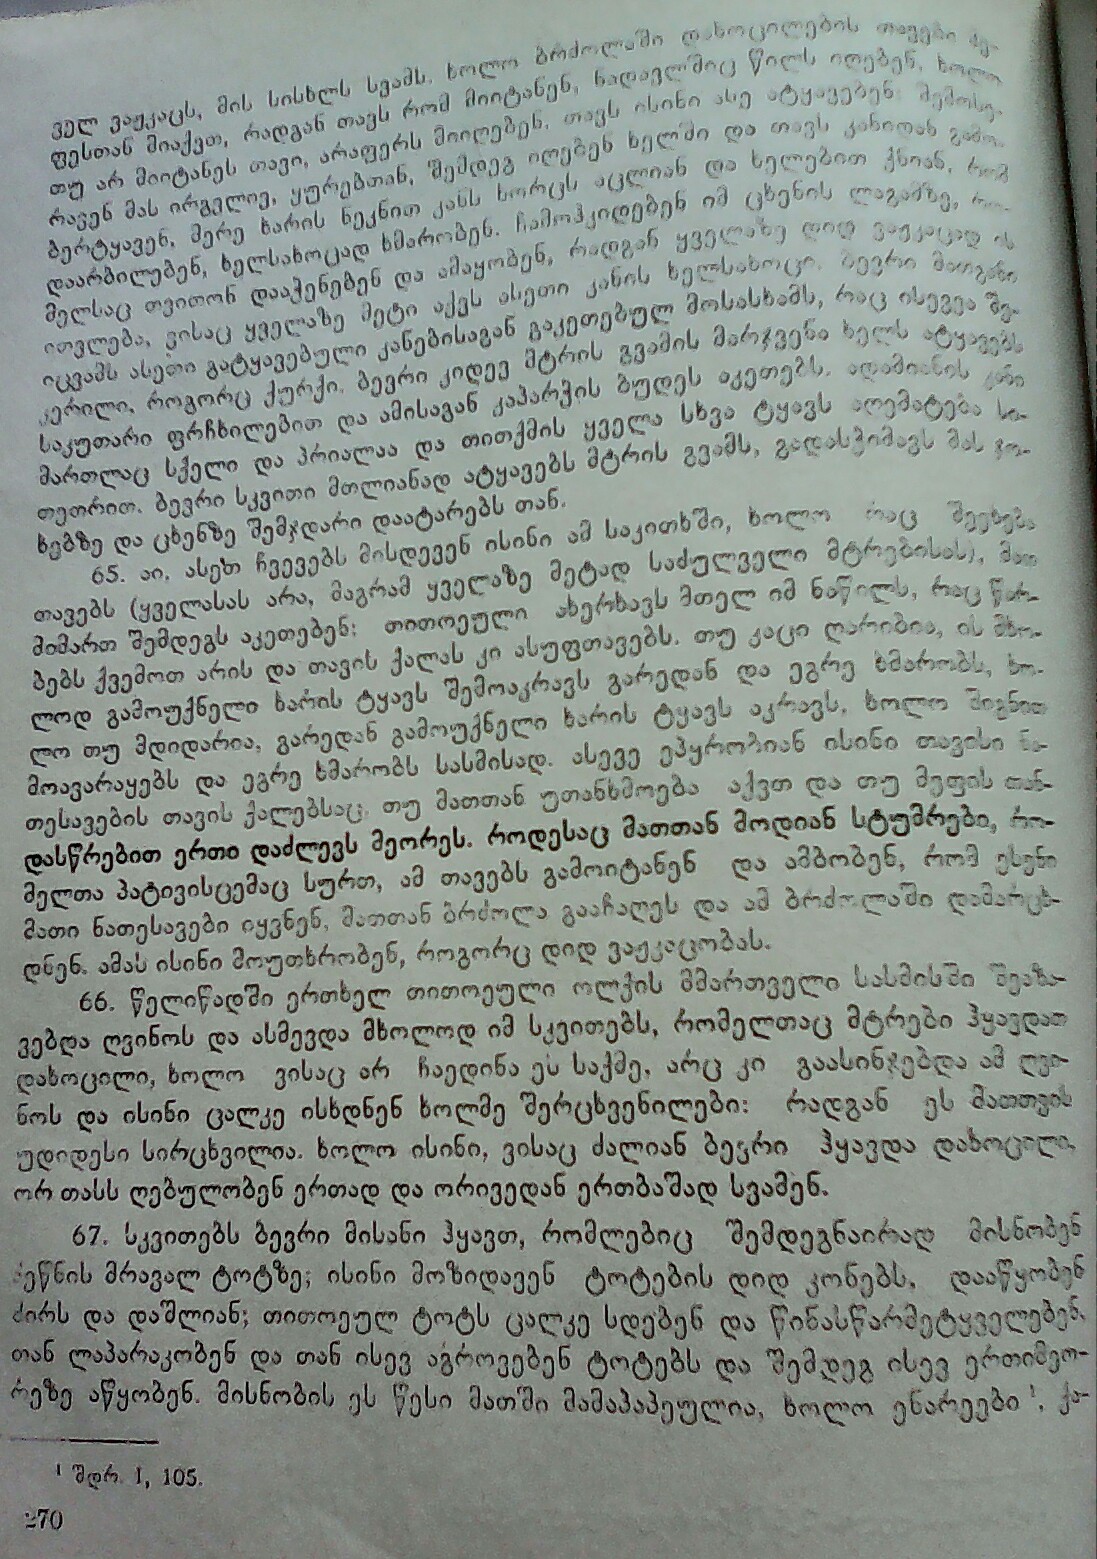 ველ ვაჟკაცს, მის სისხლს სვამს, ხოლო ბრძოლაში დახოცილების თავები მე-
ფესთან მიაქვთ, რადგან თავს რომ მიიტანენ, ნადავლშიც წილს იღებენ, ხოლო
თუ არ მიიტანეს თავი, არაფერს მიიღებენ. თავს ისინი ასე ატყავებენ: შემოსე-
რავენ მას ირგვლივ, ყურებთან, შემდეგ იღებენ ხელში და თავს კანიდან გამო-
ბერტყავენ, მერე ხარის ნეკნით კანს ხორცს აცლიან და ხელებით ქნიან, რომ
დაარბილებენ, ხელსახოცად ხმარობენ. ჩამოჰკიდებენ იმ ცხენის ლაგამზე, რო-
მელსაც თვითონ დააჭენებენ და ამაყობენ, რადგან ყველაზე დიდ ვაჟკაცად ის
ითვლება, ვისაც ყველაზე მეტი აქვს ასეთი კანის ხელსახოცი. ბევრი მათგანი
იცვამს ასეთი გატყავებული კანებისაგან გაკეთებულ მოსასხამს, რაც ისევეა შე-
კერილი, როგორც ქურქი. ბევრი კიდევ მტრის გვამის მარჯვენა ხელს ატყავებს
საკუთარი ფრჩხილებით და ამისაგან კაპარჭის ბუდეს აკეთებს. ადამიანის კანი
მართლაც სქელი და პრიალაა და თითქმის ყველა სხვა ტყავს აღემატება სი-
თეთრით. ბევრი სკვითი მთლიანად ატყავებს მტრის გვამს, გადასჭიმავს მას ჯო-
ხებზე და ცხენზე შემჯდარი დაატარებს თან.
65. აი, ასეთ ჩვევებს მისდევენ ისინი ამ საკითხში, ხოლო რაც შეეხება
თავებს (ყველასას არა, მაგრამ ყველაზე მეტად საძულველი მტრებისას), მათ
მიმართ შემდეგს აკეთებენ: თითოეული ახერხავს მთელ იმ ნაწილს, რაც წარ-
ბებს ქვემოთ არის და თავის ქალას კი ასუფთავებს. თუ კაცი ღარიბია, ის მხო-
ლოდ გამოუქნელი ხარის ტყავს შემოაკრავს გარედან და ეგრე ხმარობს, ხო-
ლო თუ მდიდარია, გარედან გამოუქნელი ხარის ტყავს აკრავს, ხოლო შიგნით
მოავარაყებს და ეგრე ხმარობს სასმისად. ასევე ეპყრობიან ისინი თავისი ნა-
თესავების თავის ქალებსაც, თუ მათთან უთანხმოება აქვთ და თუ მეფის თან-
დასწრებით ერთი დაძლევს მეორეს. როდესაც მათთან მოდიან სტუმრები, რო-
მელთა პატივისცემაც სურთ, ამ თავებს გამოიტანენ და ამბობენ, რომ ესენი
მათი ნათესავები იყვნენ, მათთან ბრძოლა გააჩაღეს და ამ ბრძოლაში დამარცხ-
დნენ. ამას ისინი მოუთხრობენ, როგორც დიდ ვაჟკაცობას.
66. წელიწადში ერთხელ თითოეული ოლქის მმართველი სასმისში შეაზა-
ვებდა ღვინოს და ასმევდა მხოლოდ იმ სკვითებს, რომელთაც მტრები ჰყავდათ
დახოცილი, ხოლო ვისაც არ ჩაედინა ეს საქმე, არც კი გაასინჯებდა ამ ღვი-
ნოს და ისინი ცალკე ისხდნენ ხოლმე შერცხვენილები: რადგან ეს მათთვის
უდიდესი სირცხვილია. ხოლო ისინი, ვისაც ძალიან ბევრი ჰყავდა დახოცილი,
ორ თასს ღებულობენ ერთად და ორივედან ერთბაშად სვამენ.
67. სკვითებს ბევრი მისანი ჰყავთ, რომლებიც შემდეგნაირად მისნობენ
ძეწნის მრავალ ტოტზე; ისინი მოზიდავენ ტოტების დიდ კონებს, დააწყობენ
ძირს და დაშლიან; თითოეულ ტოტს ცალკე სდებენ და წინასწარმეტყველებენ,
თან ლაპარაკობენ და თან ისევ აგროვებენ ტოტებს და შემდეგ ისევ ერთიმეო-
რეზე აწყობენ. მისნობის ეს წესი მათში მამაპაპეულია, ხოლო ენარეები ¹, ქა-
¹ შდრ. I, 105.
270